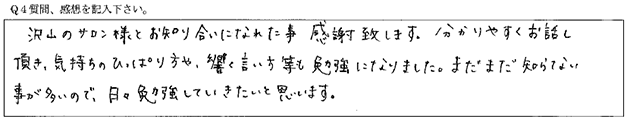 Q4質問、感想を記入下さい。
沢山のサロン様とお知り合いになれた事 感謝致します。分かりやすくお話し
頂き、気持ちのひっぱり方や、響く言い方等も勉強になりました。まだまだ知らない
事が多いので、日々勉強していきたいと思います。